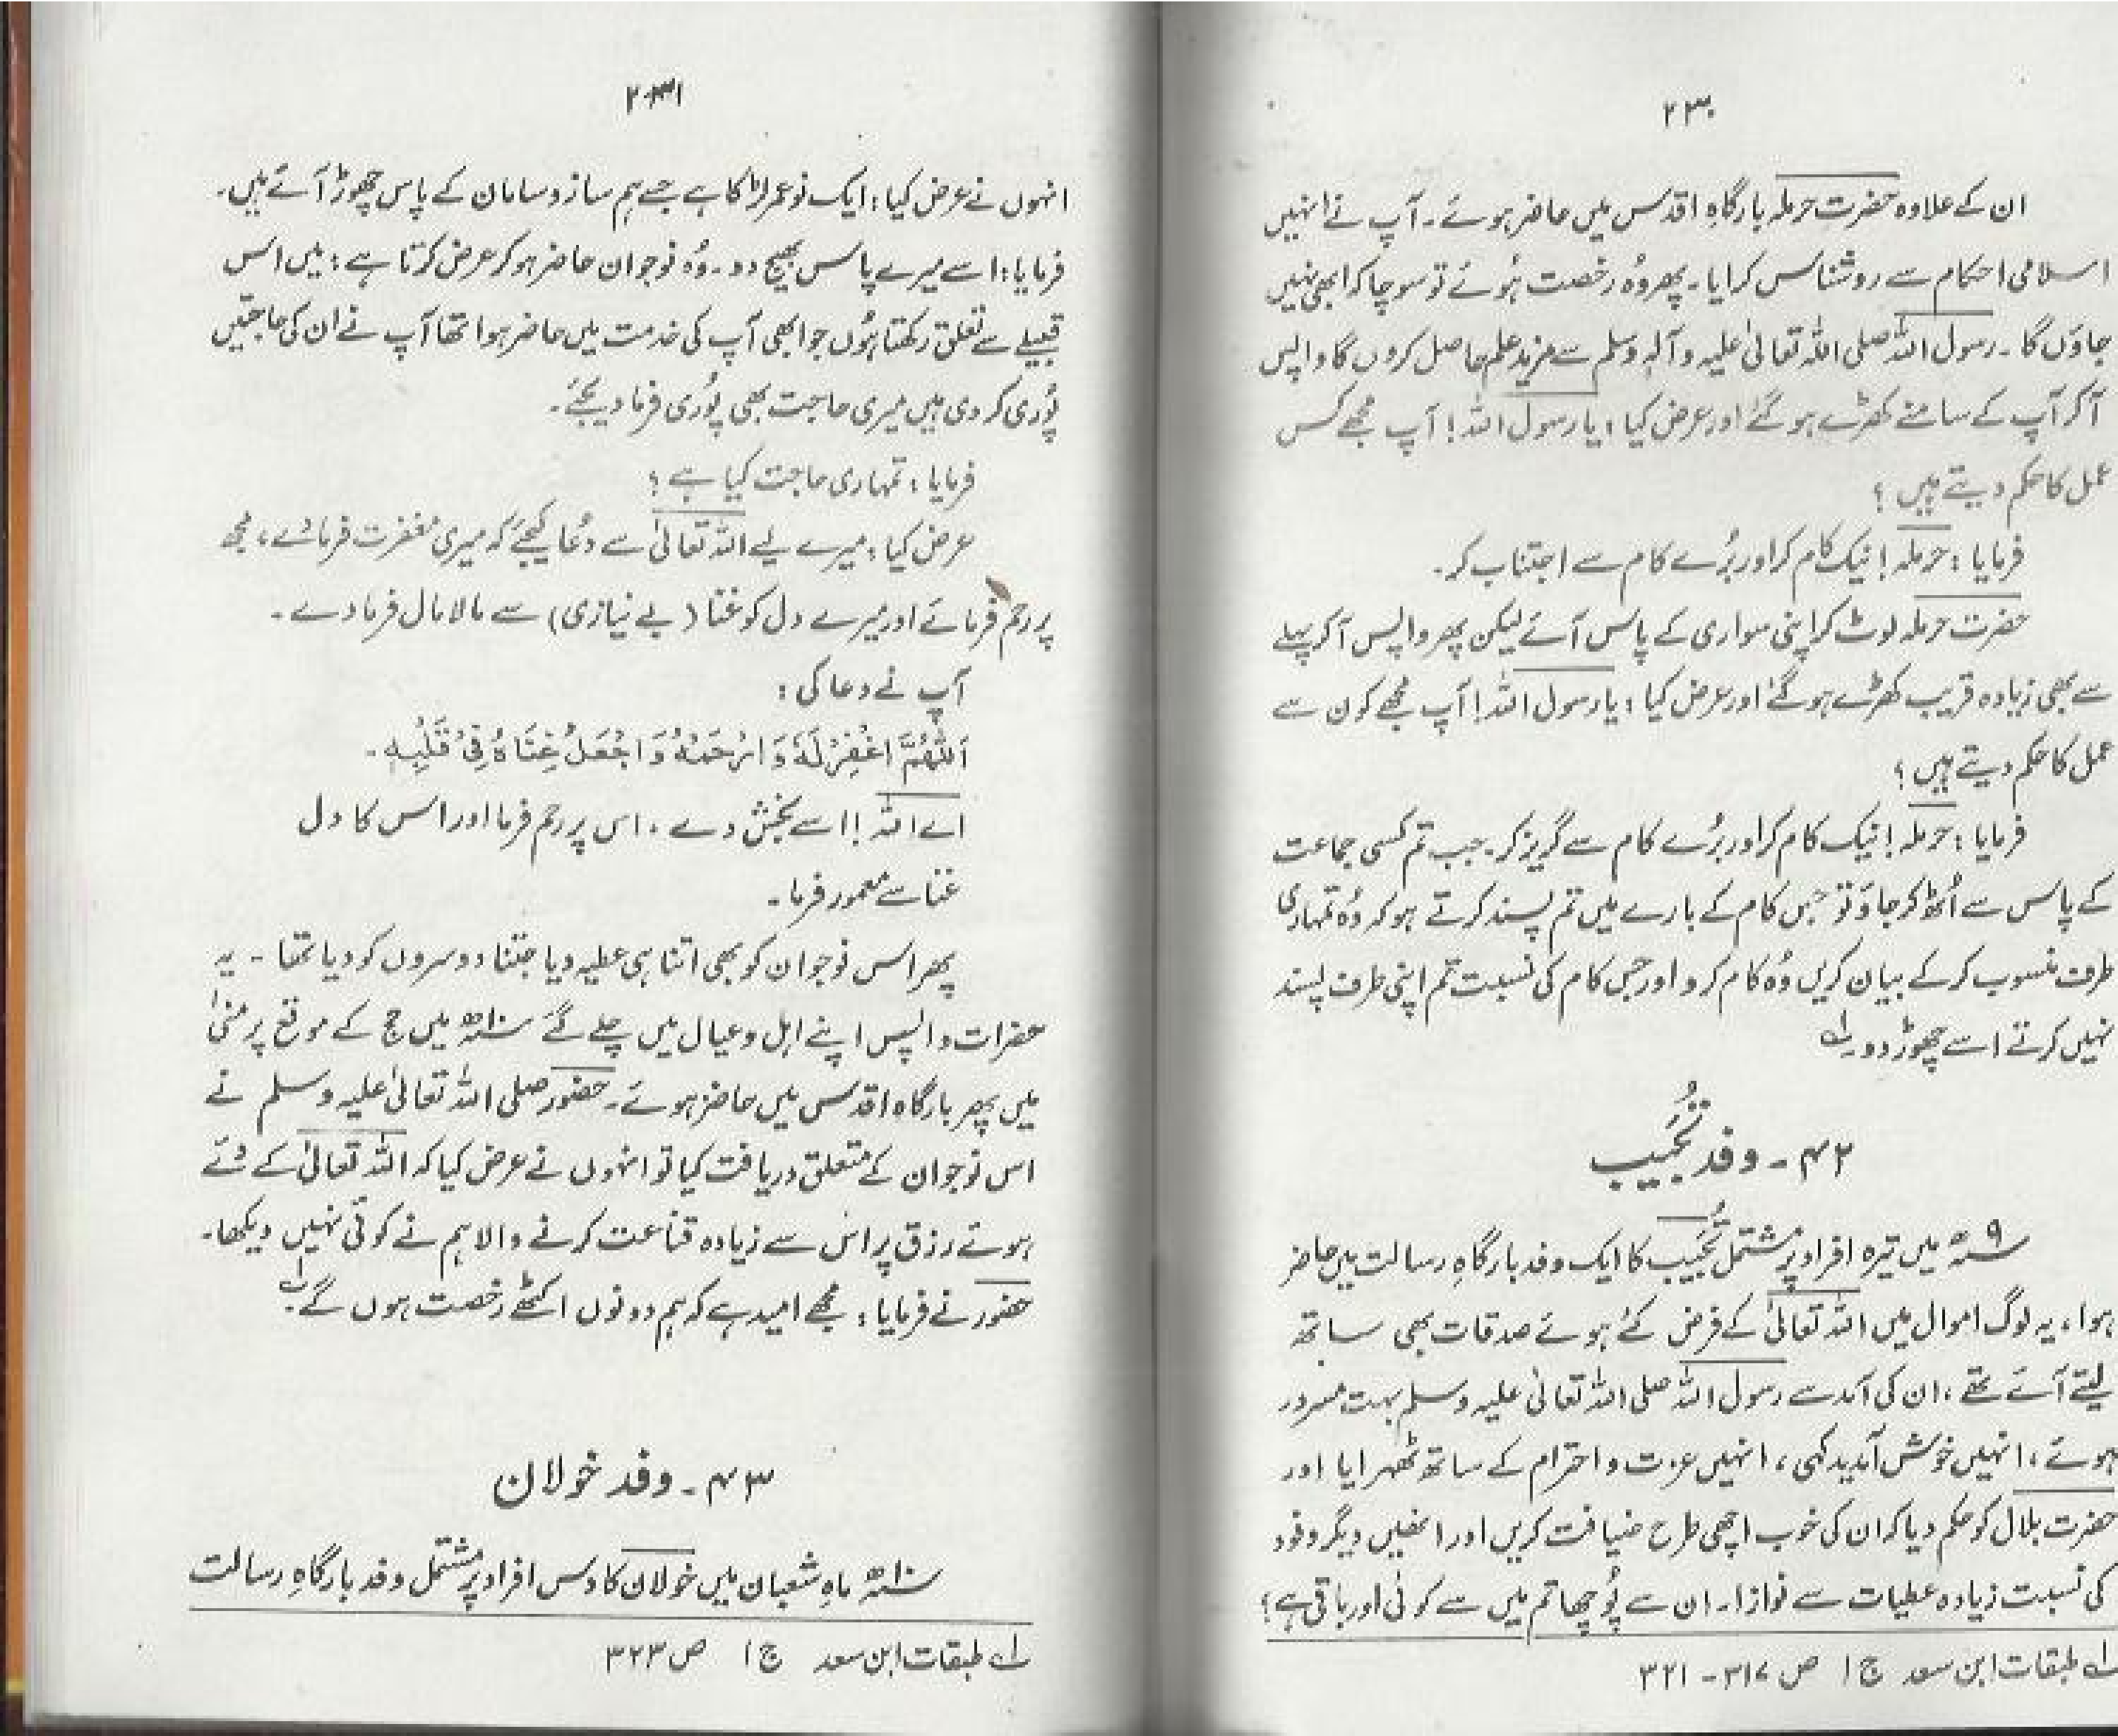 ۲۳۰
ان کے علاوہ حضرت حرملہ بارگاہِ اقدس میں حاضر ہوئے۔ آپ نے انہیں
اسلامی احکام سے روشناس کرایا۔ پھر وُہ رخصت ہُوئے تو سوچا کہ ابھی نہیں
جاؤں گا۔ رسول اللہ صلی اللہ تعالیٰ علیہ وآلہٖ وسلم سے مزید علم حاصل کروں گا واپس
آکر آپ کے سامنے کھڑے ہوگئے اور عرض کیا: یا رسول اللہ! آپ مجھے کس
عمل کا حکم دیتے ہیں؟
فرمایا: حرملہ! نیک کام کر اور بُرے کام سے اجتناب کر۔
حضرت حرملہ لوٹ کر اپنی سواری کے پاس آئے لیکن پھر واپس آکر پہلے
سے بھی زیادہ قریب کھڑے ہوگئے اور عرض کیا: یا رسول اللہ! آپ مجھے کون سے
عمل کا حکم دیتے ہیں؟
فرمایا: حرملہ! نیک کام کر اور بُرے کام سے گریز کر۔ جب تم کسی جماعت
کے پاس سے اُٹھ کر جاؤ تو جس کام کے بارے میں تم پسند کرتے ہو کہ وُہ تمہاری
طرف منسوب کرکے بیان کریں وُہ کام کرو اور جس کام کی نسبت تم اپنی طرف پسند
نہیں کرتے اسے چھوڑ دو۔ لے
۴۲۔ وفد تُجَیب
۹ھ میں تیرہ افراد پر مشتمل تُجَیب کا ایک وفد بارگاہِ رسالت میں حاضر
ہوا، یہ لوگ اموال میں اللہ تعالیٰ کے فرض کئے ہوئے صدقات بھی ساتھ
لیتے آئے تھے، ان کی آمد سے رسول اللہ صلی اللہ تعالیٰ علیہ وسلم بہت مسرور
ہوئے، انہیں خوش آمدید کہی، انہیں عزت و احترام کے ساتھ ٹھہرایا اور
حضرت بلال کو حکم دیا کہ ان کی خوب اچھی طرح ضیافت کریں اور انھیں دیگر وفود
کی نسبت زیادہ عطیات سے نوازا۔ ان سے پُوچھا تم میں سے کوئی اور باقی ہے؟
لے طبقات ابن سعد ج ۱ ص ۳۱۷ - ۳۲۱
۲۳۱
انہوں نے عرض کیا: ایک نوعمر لڑکا ہے جسے ہم سازوسامان کے پاس چھوڑ آئے ہیں۔
فرمایا: اسے میرے پاس بھیج دو۔ وُہ نوجوان حاضر ہوکر عرض کرتا ہے: میں اس
قبیلے سے تعلق رکھتا ہُوں جو ابھی آپ کی خدمت میں حاضر ہوا تھا آپ نے ان کی حاجتیں
پُوری کردی ہیں میری حاجت بھی پُوری فرما دیجئے۔
فرمایا: تمہاری حاجت کیا ہے؟
عرض کیا: میرے لیے اللہ تعالیٰ سے دُعا کیجئے کہ میری مغفرت فرمائے، مجھ
پر رحم فرمائے اور میرے دل کو غنا (بے نیازی) سے مالامال فرمادے۔
آپ نے دعا کی:
اَللّٰھُمَّ اغْفِرْلَہٗ وَارْحَمْہُ وَاجْعَلْ غِنَاہُ فِیْ قَلْبِہٖ۔
اے اللہ! اسے بخش دے، اس پر رحم فرما اور اس کا دل
غنا سے معمور فرما۔
پھر اس نوجوان کو بھی اتنا ہی عطیہ دیا جتنا دوسروں کو دیا تھا۔ یہ
حضرات واپس اپنے اہل وعیال میں چلے گئے ۱۰ھ میں حج کے موقع پر منیٰ
میں پھر بارگاہ اقدس میں حاضر ہوئے۔ حضور صلی اللہ تعالیٰ علیہ وسلم نے
اس نوجوان کے متعلق دریافت کیا تو انہوں نے عرض کیا کہ اللہ تعالیٰ کے دئے
ہوئے رزق پر اس سے زیادہ قناعت کرنے والا ہم نے کوئی نہیں دیکھا۔
حضور نے فرمایا: مجھے امید ہے کہ ہم دونوں اکٹھے رخصت ہوں گے۔ لے
۴۳۔ وفد خولان
۱۰ھ ماہِ شعبان میں خولان کا دس افراد پر مشتمل وفد بارگاہِ رسالت
لے طبقات ابن سعد ج ۱ ص ۳۲۳